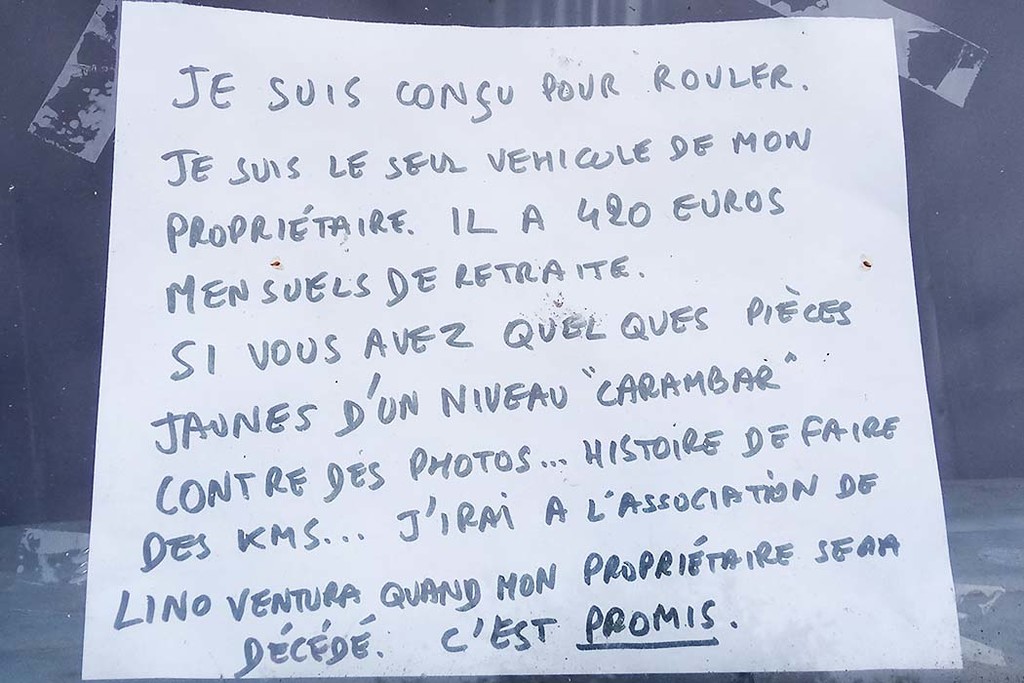 JE SUIS CONÇU POUR ROULER.
JE SUIS LE SEUL VEHICULE DE MON
PROPRIÉTAIRE. IL A 420 EUROS
MENSUELS DE RETRAITE.
SI VOUS AVEZ QUELQUES PIÈCES
JAUNES D'UN NIVEAU "CARAMBAR"
CONTRE DES PHOTOS... HISTOIRE DE FAIRE
DES KMS... J'IRAI A L'ASSOCIATION DE
LINO VENTURA QUAND MON PROPRIÉTAIRE SERA
DÉCÉDÉ. C'EST PROMIS.